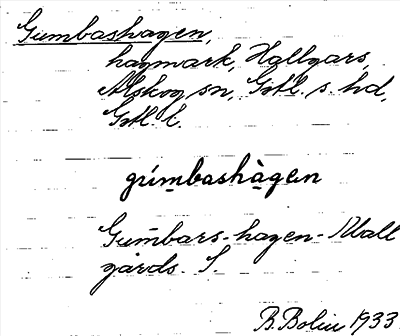 Gumbashagen,
hagmark, Hallgårs,
Alskog sn, Gotl. s. hd,
Gotl. l.
gúm̲bashà̲gen
Gum̄bars-hagen- Hall
gårds. S.
B. Bolin 1933